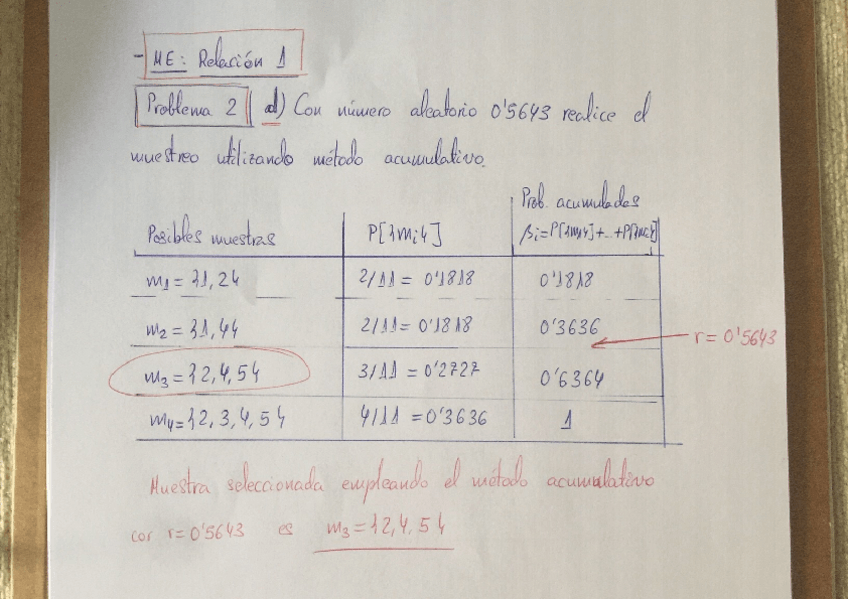 - ME: Relación 1
Problema 2 d) Con número aleatorio 0'5643 realice el
muestreo utilizando método acumulativo.
Posibles muestras P[{mi}] Prob. acumuladas βi=P[{m1}]+...+P[{mi}]
m1 = {1,2} 2/11 = 0'1818 0'1818
m2 = {1,4} 2/11 = 0'1818 0'3636
r = 0'5643
m3 = {2,4,5} 3/11 = 0'2727 0'6364
m4 = {2,3,4,5} 4/11 = 0'3636 1
Muestra seleccionada empleando el método acumulativo
con r = 0'5643 es m3 = {2,4,5}